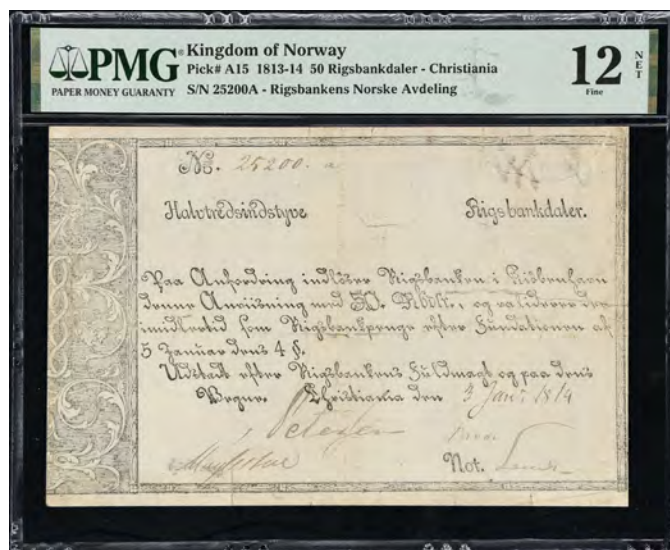 PMG
PAPER MONEY GUARANTY
Kingdom of Norway
Pick# A15 1813-14 50 Rigsbankdaler - Christiania
S/N 25200A - Rigsbankens Norske Avdeling
12
Fine
NET
No. 25200. a
Halvtredsindstyve Rigsbankdaler.
Paa Anfordring indløser Rigsbanken i Kiøbenhavn
denne Anviisning med 50. Rbdlr., og validerer den
imidlertid som Rigsbankpenge efter Fundationen af
5 Januar dens 4 §.
Udstedt efter Rigsbankens Fuldmagt og paa dens
Vegne. Christiania den 3 Jan: 1814
Not.